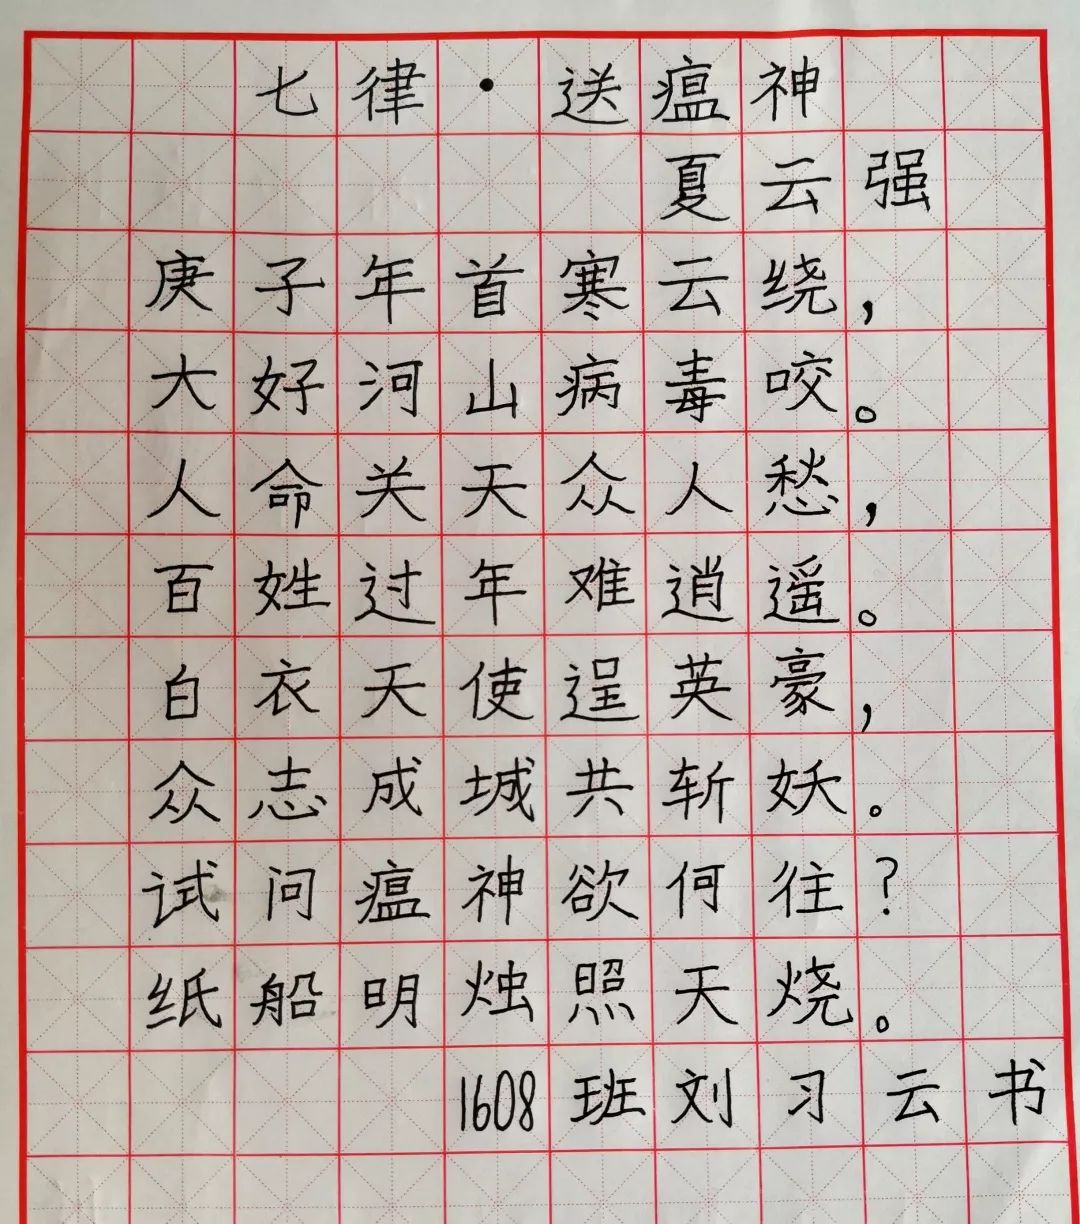 七律·送瘟神
夏云强
庚子年首寒云绕，
大好河山病毒咬。
人命关天众人愁，
百姓过年难逍遥。
白衣天使逞英豪，
众志成城共斩妖。
试问瘟神欲何往？
纸船明烛照天烧。
1608班刘习云书